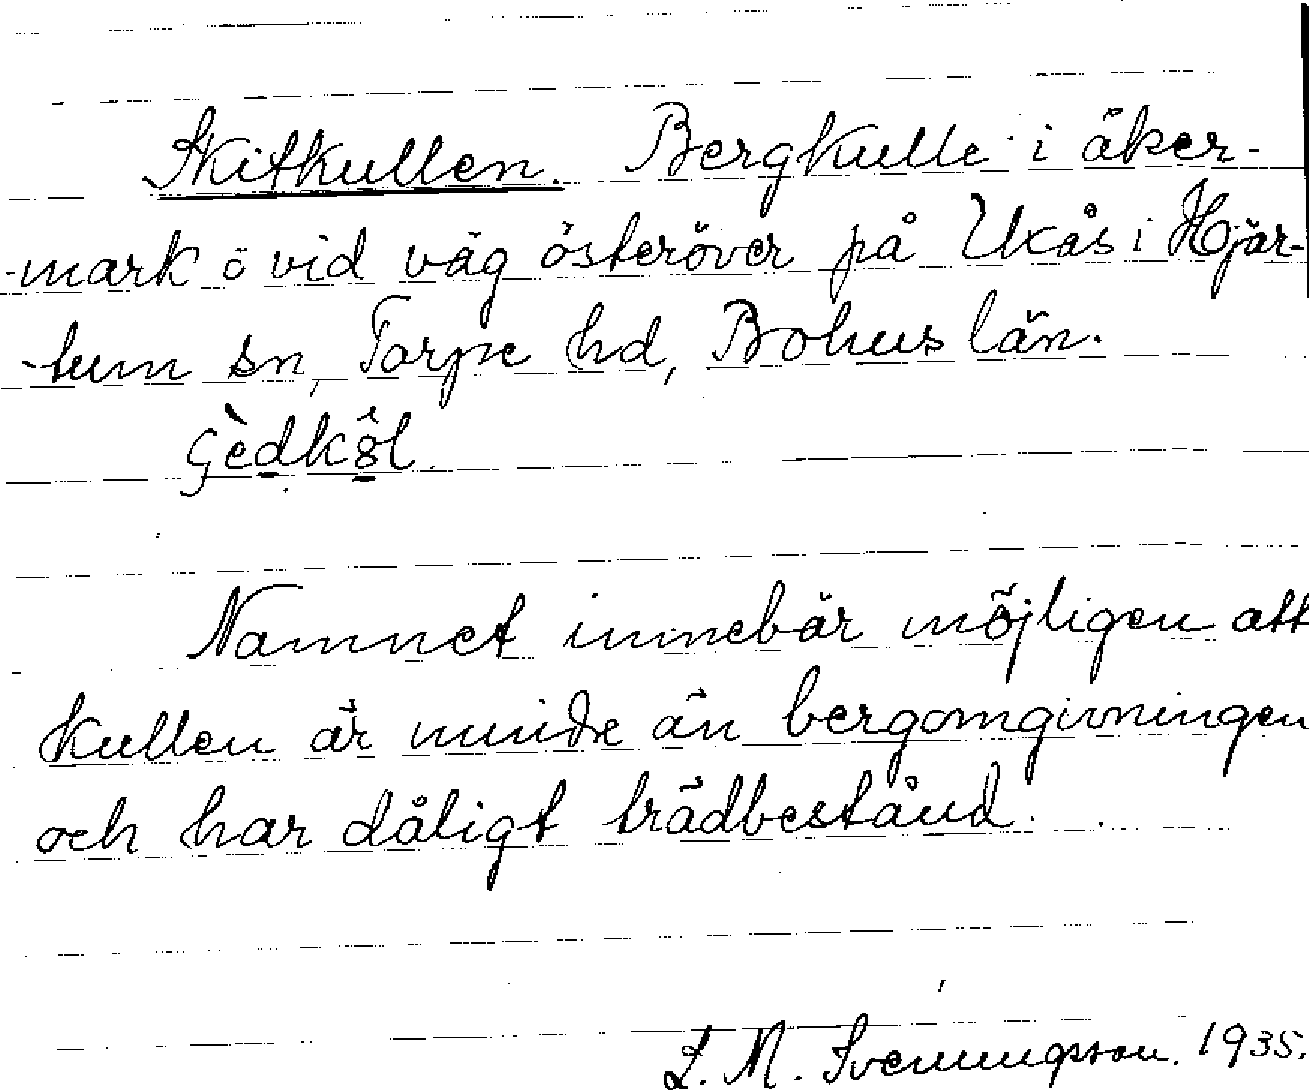 Skitkullen. Bergkulle i åker-
-mark ö vid väg österöver på Uxås i Hjär-
-tum sn, Torpe hd, Bohus län.
Namnet innebär möjligen att
kullen är mindre än bergomgivningen
och har dåligt trädbestånd.
L. M. Svenungsson. 1935.